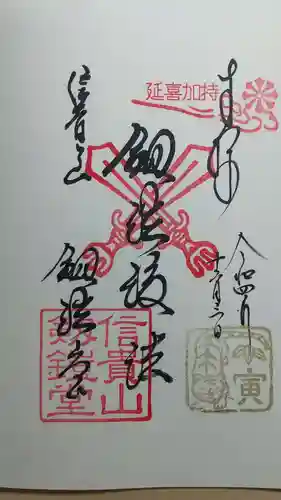 奉拝
延喜加持
令和四年
十二月三日
剱鎧護法
信貴山
剱鎧堂
信貴山
剱鎧堂
寅